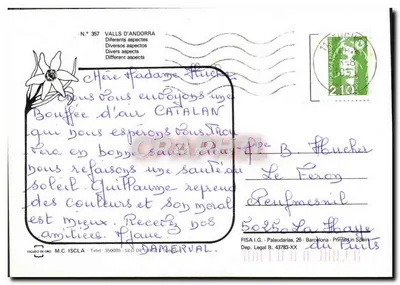 N.º 367 VALLS D'ANDORRA
Diferents aspectes
Diversos aspectos
Divers aspects
Different aspects
2,10
Chère Madame Hucher
Nous vous envoyons une
Bouffée d'air CATALAN
que nous espérons vous trou
vera en bonne santé. Ici
nous refaisons une santé au
soleil. Guillaume reprend
des couleurs et son moral
est mieux. Recevez nos
amitiés.
DAMERVAL
Mme B. Hucher
Le Feron
Neufmesnil
50250 La Haye
du Puits
FISA I.G. - Palaudarias, 26 - Barcelona - Printed in Spain
Dep. Legal B. 43783-XX
M.C. ISCLA